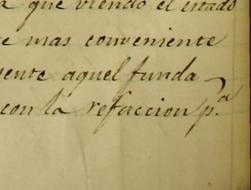 que viendo el estado
mas conveniente
aquel funda
con la refaccion p.ª